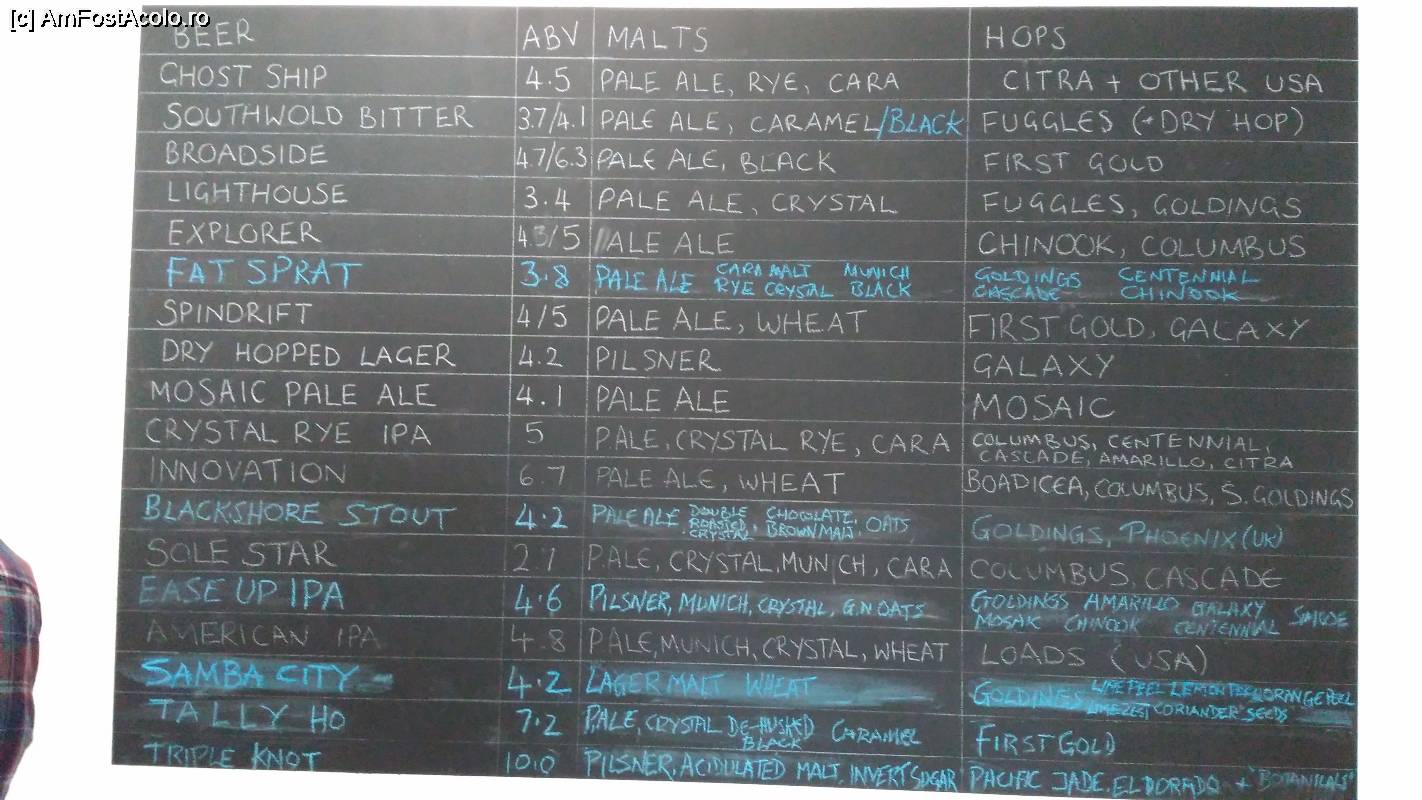 [c] AmFostAcolo.ro
BEER ABV MALTS HOPS
GHOST SHIP 4.5 PALE ALE, RYE, CARA CITRA + OTHER USA
SOUTHWOLD BITTER 3.7/4.1 PALE ALE, CARAMEL/BLACK FUGGLES (+DRY HOP)
BROADSIDE 4.7/6.3 PALE ALE, BLACK FIRST GOLD
LIGHTHOUSE 3.4 PALE ALE, CRYSTAL FUGGLES, GOLDINGS
EXPLORER 4.3/5 PALE ALE CHINOOK, COLUMBUS
FAT SPRAT 3.8 PALE ALE CARA MALT MUNICH GOLDINGS CENTENNIAL
RYE CRYSTAL BLACK CASCADE CHINOOK
SPINDRIFT 4/5 PALE ALE, WHEAT FIRST GOLD, GALAXY
DRY HOPPED LAGER 4.2 PILSNER GALAXY
MOSAIC PALE ALE 4.1 PALE ALE MOSAIC
CRYSTAL RYE IPA 5 PALE, CRYSTAL RYE, CARA COLUMBUS, CENTENNIAL,
CASCADE, AMARILLO, CITRA
INNOVATION 6.7 PALE ALE, WHEAT BOADICEA, COLUMBUS, S. GOLDINGS
BLACKSHORE STOUT 4.2 PALE ALE DOUBLE ROASTED CRYSTAL, CHOCOLATE, BROWN MALT, OATS GOLDINGS, PHOENIX (UK)
SOLE STAR 2.7 PALE, CRYSTAL, MUNICH, CARA COLUMBUS, CASCADE
EASE UP IPA 4.6 PILSNER, MUNICH, CRYSTAL, G.N OATS GOLDINGS AMARILLO GALAXY SIMCOE
MOSAIC CHINOOK CENTENNIAL
AMERICAN IPA 4.8 PALE, MUNICH, CRYSTAL, WHEAT LOADS (USA)
SAMBA CITY 4.2 LAGER MALT WHEAT GOLDINGS LIME PEEL LEMON PEEL ORANGE PEEL
LIME ZEST CORIANDER SEEDS
TALLY HO 7.2 PALE, CRYSTAL DE-HUSKED BLACK CARAMEL FIRST GOLD
TRIPLE KNOT 10.0 PILSNER, ACIDULATED MALT, INVERT SUGAR PACIFIC JADE, EL DORADO + "BOTANICALS"